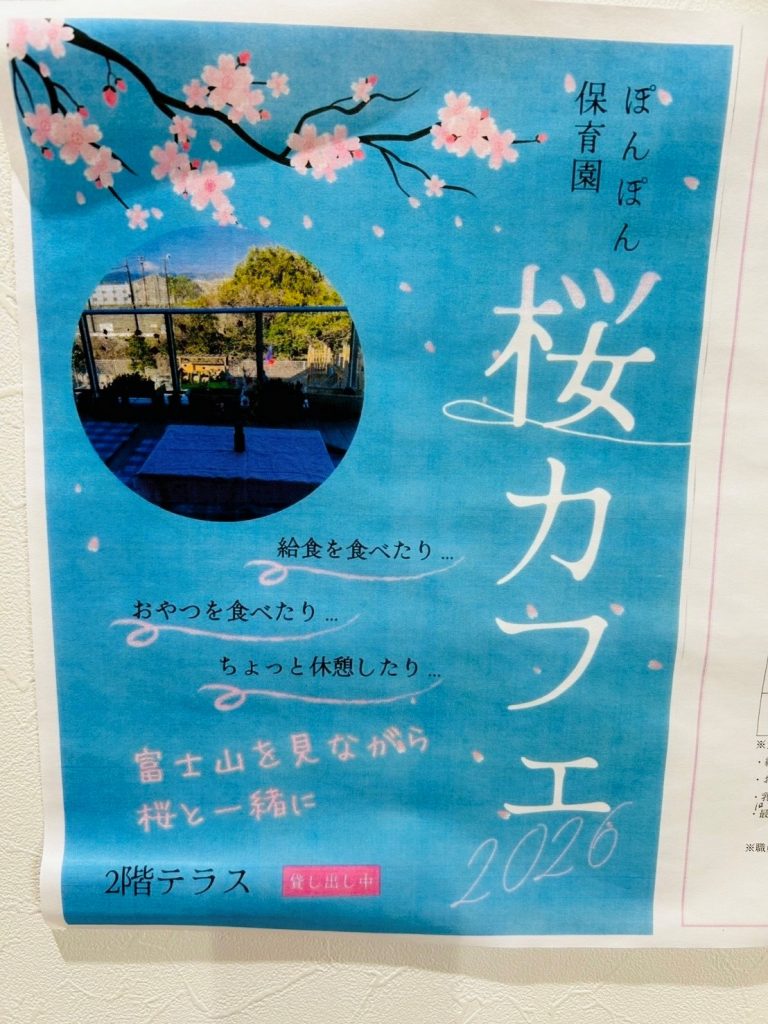 ぽんぽん
保育園
桜カフェ
2026
給食を食べたり...
おやつを食べたり...
ちょっと休憩したり...
富士山を見ながら
桜と一緒に
2階テラス
貸し出し中
※職